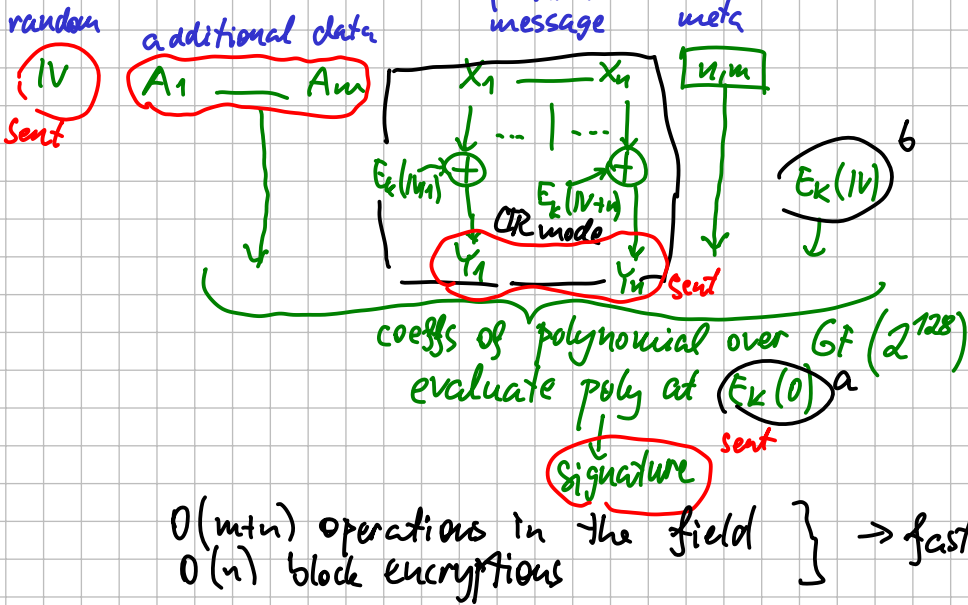 random
additional data
message
meta
IV
A1 —— Am
X1 —— Xn
n,m
sent
... ...
b
Ek(IV+1)
Ek(IV+n)
Ek(IV)
CTR mode
Y1 —— Yn
sent
coeffs of polynomial over GF(2^128)
evaluate poly at Ek(0) a
sent
signature
O(m+n) operations in the field
O(n) block encryptions
} → fast